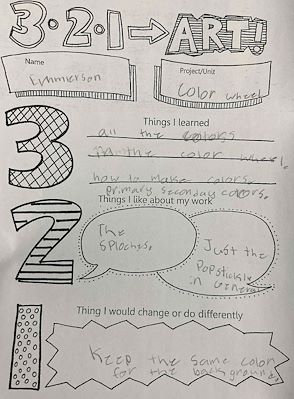 3·2·1→ART!
Name
Emmerson
Project/Unit
Color wheel
3
Things I learned
all the colors
in the color wheel.
how to make colors.
primary seconday colors.
2
Things I like about my work
The
Sploches.
Just the
Popstickle
in general
1
Thing I would change or do differently
Keep the same color
for the background.